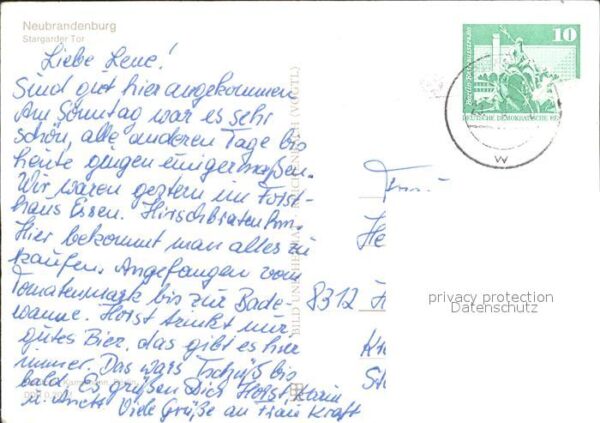 Neubrandenburg
Stargarder Tor
Liebe Lene!
Sind gut hier angekommen
Am Sonntag war es sehr
schön, alle anderen Tage bis
heute gingen einigermaßen.
Wir waren gestern im Forst-
haus Essen. Hirschbraten hm.
Hier bekommt man alles zu
kaufen. Angefangen vom
Tomatenmark bis zur Bade-
wanne. Horst trinkt nur
gutes Bier, das gibt es hier
immer. Das wars Tschüß bis
bald. Es grüßen Dich Horst, Karin
u. Viele Grüße an Frau Kraft
BILD UND HEIMAT REICHENBACH (VOGTL)
10
DEUTSCHE DEMOKRATISCHE RE
W
He
8312
privacy protection
Datenschutz